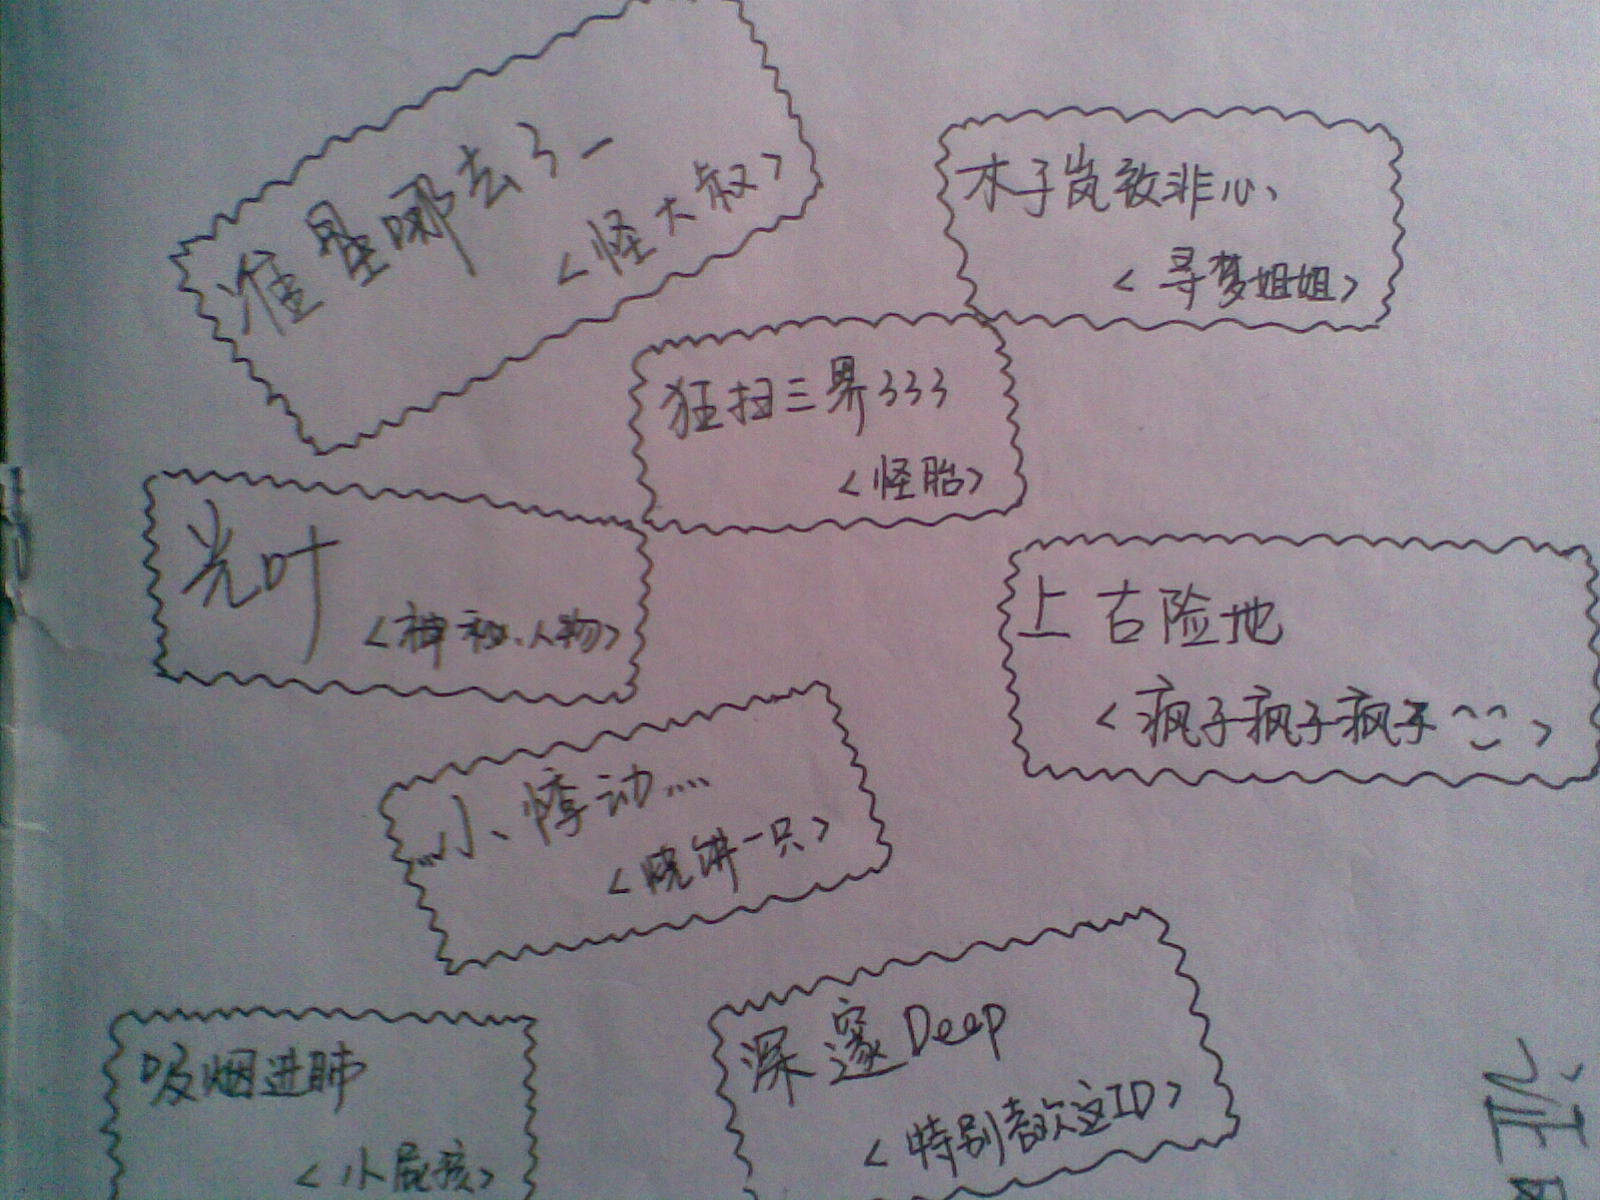 准星哪去了一
<怪大叔>
木子岚敌非心
<寻梦姐姐>
狂扫三界333
<怪胎>
光叶
<神秘人物>
上古险地
<疯子疯子疯子~~>
小悸动……
<烧饼一只>
深邃Deep
<特别喜欢这ID>
吸烟进肺
<小屁孩>